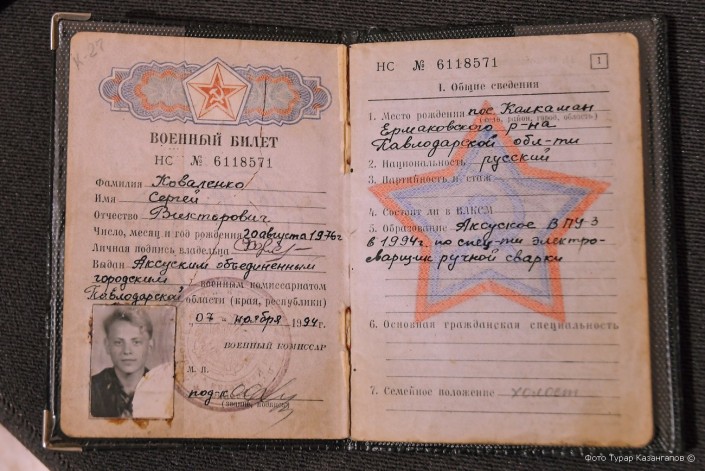 К-27
ВОЕННЫЙ БИЛЕТ
НС № 6118571
Фамилия Коваленко
Имя Сергей
Отчество Викторович
Число, месяц и год рождения 20 августа 1976г
Личная подпись владельца
Выдан Аксуским объединенным
городским военным комиссариатом
Павлодарской области (края, республики)
„07 - ноября 1994г.
ВОЕННЫЙ КОМИССАР
М. П.
подп-к
НС № 6118571
1
I. Общие сведения
1. Место рождения пос. Калкаман
(село, район, город, область)
Ермаковского р-на
Павлодарской обл-ти
2. Национальность русский
3. Партийность и стаж
4. Состоит ли в ВЛКСМ
5. Образование Аксуское ВПУ-3
в 1994г. по спец-ти электро-
сварщик ручной сварки
6. Основная гражданская специальность
7. Семейное положение холост
Фото Турар Казангапов ©